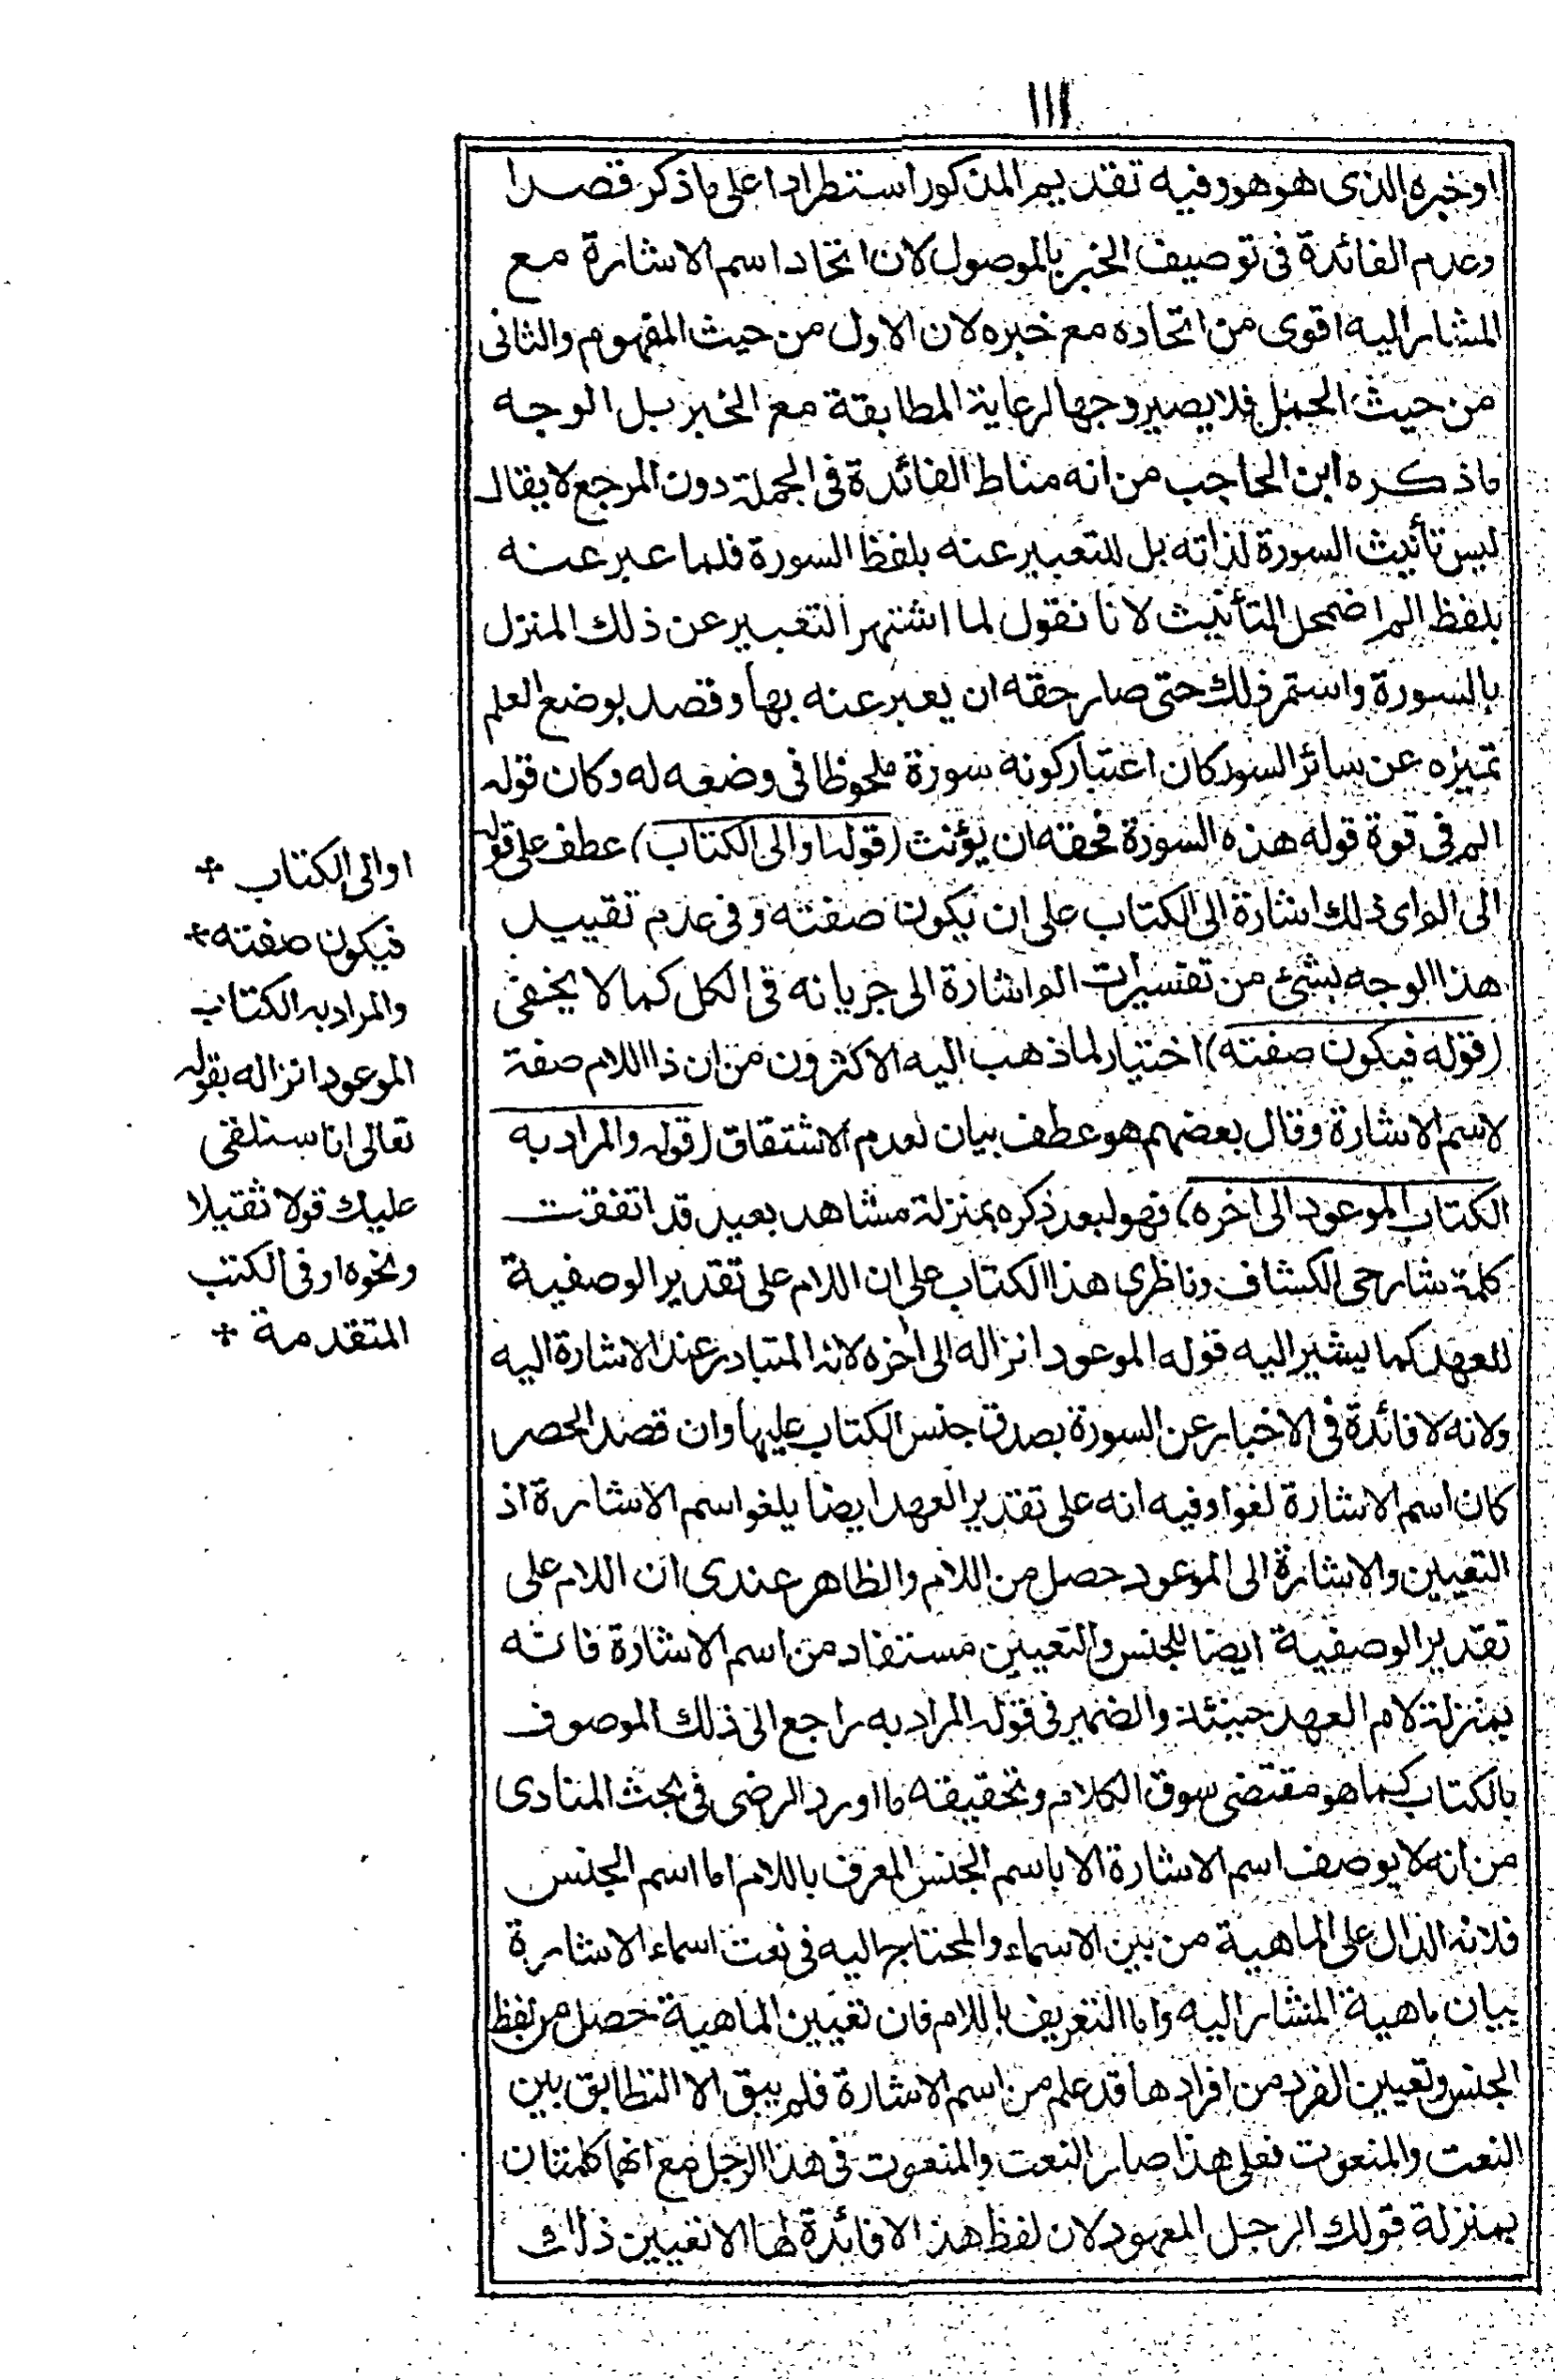 ١١١
اوخبره الذى هوهو وفيه تقديم المذكور استطرادا على ماذكر قصدا
وعدم الفائدة فى توصيف الخبر بالموصول لان اتحاد اسم الاشارة مع
المشار اليه اقوى من اتحاده مع خبره لان الاول من حيث المفهوم والثانى
من حيث الحمل فلا يصير وجها لرعاية المطابقة مع الخبر بل الوجه
ماذكره ابن الحاجب من انه مناط الفائدة فى الجملة دون المرجع لا يقال
ليس تأنيث السورة لذاته بل للتعبير عنه بلفظ السورة فلما عبر عنه
بلفظ الم اضمحل التأنيث لانا نقول لما اشتهر التعبير عن ذلك المنزل
بالسورة واستمر ذلك حتى صار حقه ان يعبر عنه بها وقصد بوضع العلم
تميزه عن سائر السور كان اعتبار كونه سورة ملحوظا فى وضعه له وكان قوله
الم فى قوة قوله هذه السورة فحقه ان يؤنث (قوله او الى الكتاب) عطف على قوله
الى الم اى ذلك اشارة الى الكتاب على ان يكون صفته وفى عدم تقييد
هذا الوجه بشئ من تفسيرات الم اشارة الى جريانه فى الكل كما لا يخفى
(قوله فيكون صفته) اختيار لما ذهب اليه الاكثرون من ان ذا اللام صفة
لاسم الاشارة وقال بعضهم هو عطف بيان لعدم الاشتقاق (قوله والمراد به
الكتاب الموعود الى اخره) فهو لبعد ذكره بمنزلة مشاهد بعيد قد اتفقت
كلمة شارحى الكشاف وناظرى هذا الكتاب على ان اللام على تقدير الوصفية
للعهد كما يشير اليه قوله الموعود انزاله الى أخره لانه المتبادر عند الاشارة اليه
ولانه لا فائدة فى الاخبار عن السورة بصدق جنس الكتاب عليها وان قصد الحصر
كان اسم الاشارة لغوا وفيه انه على تقدير العهد ايضا يلغو اسم الاشارة اذ
التعيين والاشارة الى الموعود حصل من اللام والظاهر عندى ان اللام على
تقدير الوصفية ايضا للجنس والتعيين مستفاد من اسم الاشارة فانه
بمنزلة لام العهد حينئذ والضمير فى قوله المراد به راجع الى ذلك الموصوف
بالكتاب كما هو مقتضى سوق الكلام وتحقيقه ما اورد الرضى فى بحث المنادى
من انه لا يوصف اسم الاشارة الا باسم الجنس المعرف باللام اما اسم الجنس
فلانه الدال على الماهية من بين الاسماء والمحتاج اليه فى نعت اسماء الاشارة
بيان ماهية المشار اليه واما التعريف باللام فان تعيين الماهية حصل من لفظ
الجنس وتعيين الفرد من افرادها قد علم من اسم الاشارة فلم يبق الا التطابق بين
النعت والمنعوت فعلى هذا صار النعت والمنعوت فى هذا الرجل مع انهما كلمتان
بمنزلة قولك الرجل المعهود لان لفظ هذا لا فائدة لها الا تعيين ذلك
اوالى الكتاب +
فيكون صفته +
والمراد به الكتاب
الموعود انزاله بقوله
تعالى انا سنلقى
عليك قولا ثقيلا
ونحوه اوفى الكتب
المتقدمة +